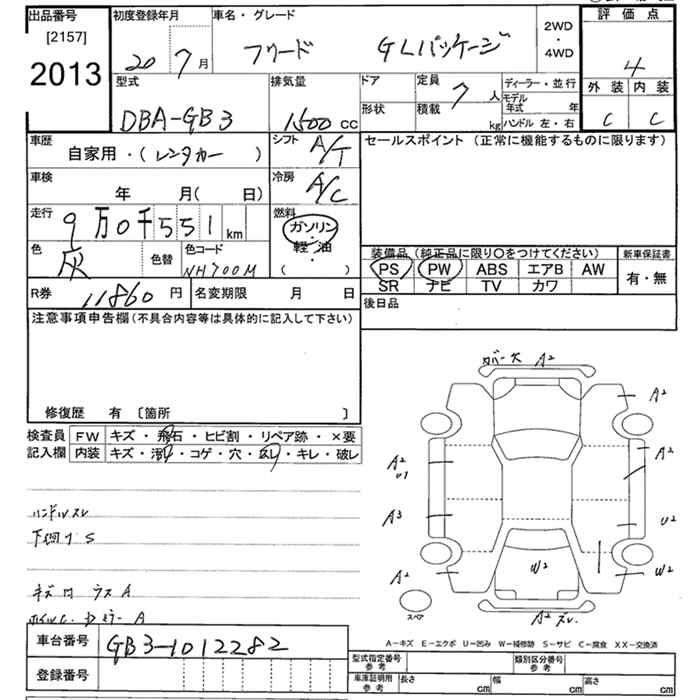 出品番号
[2157]
2013
初度登録年月
20 7 月
車名・グレード
フリード GLパッケージ
2WD
・
4WD
評価点
4
外装 内装
C C
型式
DBA-GB3
排気量
1500 CC
ドア
形状
定員 7 人
積載 kg
ディーラー・並行
モデル年式 年
ハンドル 左・右
車歴
自家用・(レンタカー )
シフト A/T
車検
年 月( 日)
冷房 A/C
走行
9万0千551km
燃料
ガソリン
・
軽・油
( )
色 灰
色替
色コード
NH700M
R券 11860円
名変期限 月 日
セールスポイント (正常に機能するものに限ります)
装備品 (純正品に限り○をつけてください)
PS PW ABS エアB AW
SR ナビ TV カワ
新車保証書
有・無
後日品
注意事項申告欄(不具合内容等は具体的に記入して下さい)
修復歴 有 〔箇所 〕
検査員
記入欄
FW キズ・飛石・ヒビ割・リペア跡・×要
内装 キズ・汚れ・コゲ・穴・スレ・キレ・破レ
ハンドルスレ
下回りS
キズ ウスA
A
カバー欠 A2
A2
A2
A2
U1
A3
U2
A2
W2
W2
スペア
A2 スレ
A−キズ E−エクボ U−凹み W−補修跡 S−サビ C−腐食 XX−交換済
車台番号 GB3-1012282
登録番号
型式指定番号
参考
類別区分番号
参考
車庫証明用
参考
長さ cm 幅 cm 高さ cm